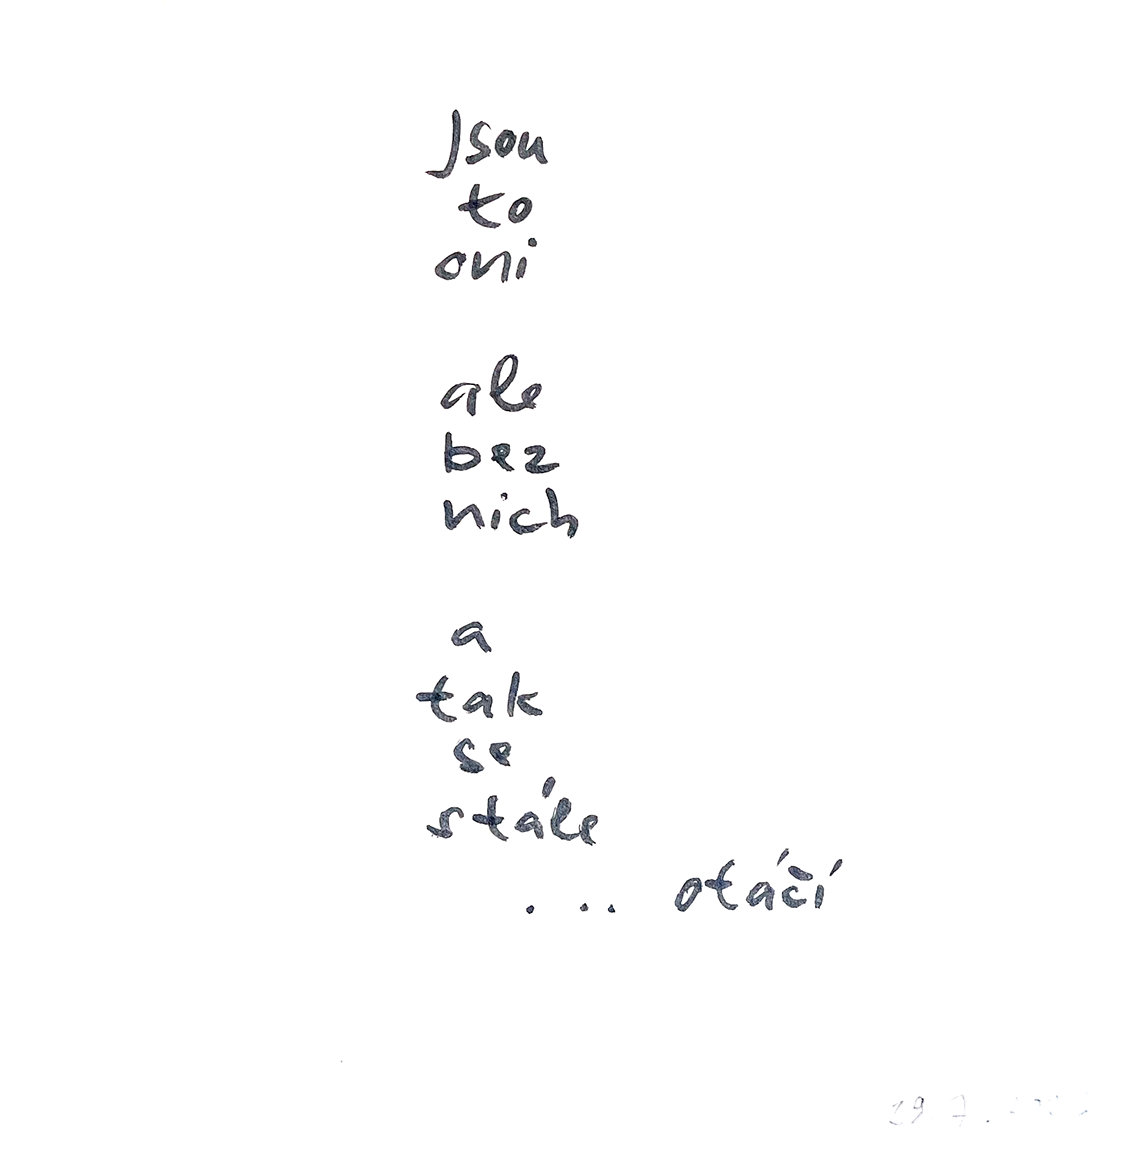 Jsou
to
oni
ale
bez
nich
a
tak
se
stále
... otáčí
29 7.